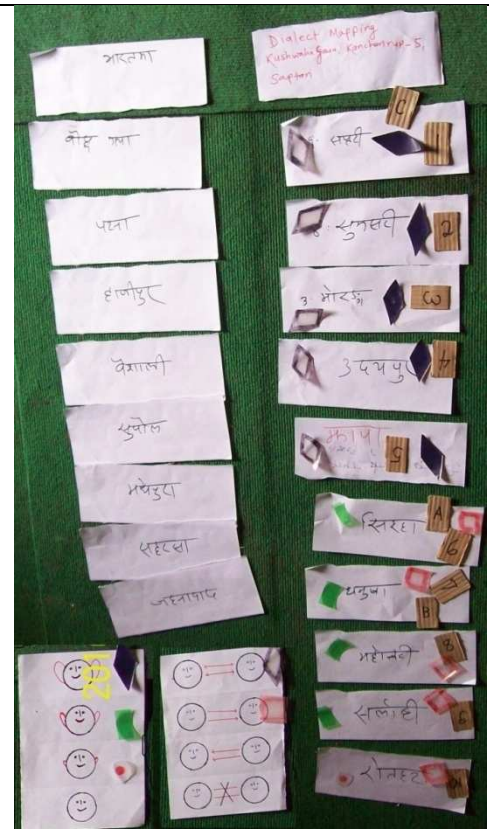 भारतमा
बौद्ध गया
पटना
हाजीपुर
वैशाली
सुपौल
मधेपुरा
सहरसा
जहानाबाद
Dialect Mapping
Kushwaha Gaun, Kanchanrup-5,
Saptari
C
सप्तरी
1
सुनसरी
2
3 मोरङ
3
उदयपुर
4
झापा
5
सिरहा
A
6
धनुषा
7
B
महोत्तरी
8
सर्लाही
9
रौतहट
10
201